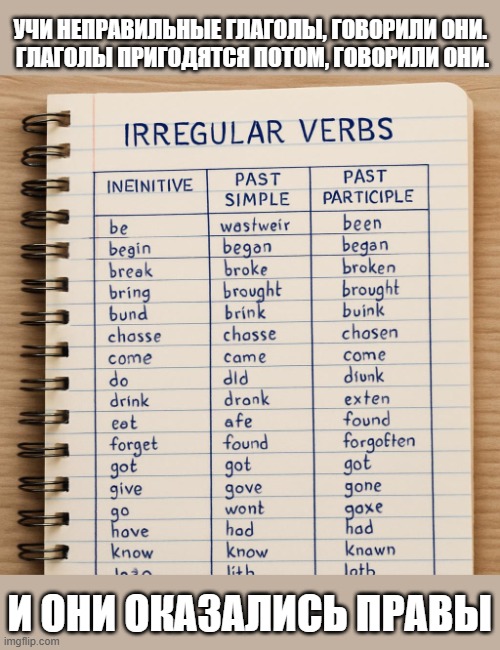 УЧИ НЕПРАВИЛЬНЫЕ ГЛАГОЛЫ, ГОВОРИЛИ ОНИ.
ГЛАГОЛЫ ПРИГОДЯТСЯ ПОТОМ, ГОВОРИЛИ ОНИ.
IRREGULAR VERBS
INEINITIVE PAST SIMPLE PAST PARTICIPLE
be wastweir been
begin began began
break broke broken
bring brought brought
bund brink buink
chasse chasse chasen
come came come
do dld diunk
drink drank exten
eat afe found
forget found forgoften
got got got
give gove gone
go wont goxe
have had had
know know knawn
lith lath
И ОНИ ОКАЗАЛИСЬ ПРАВЫ
imgflip.com